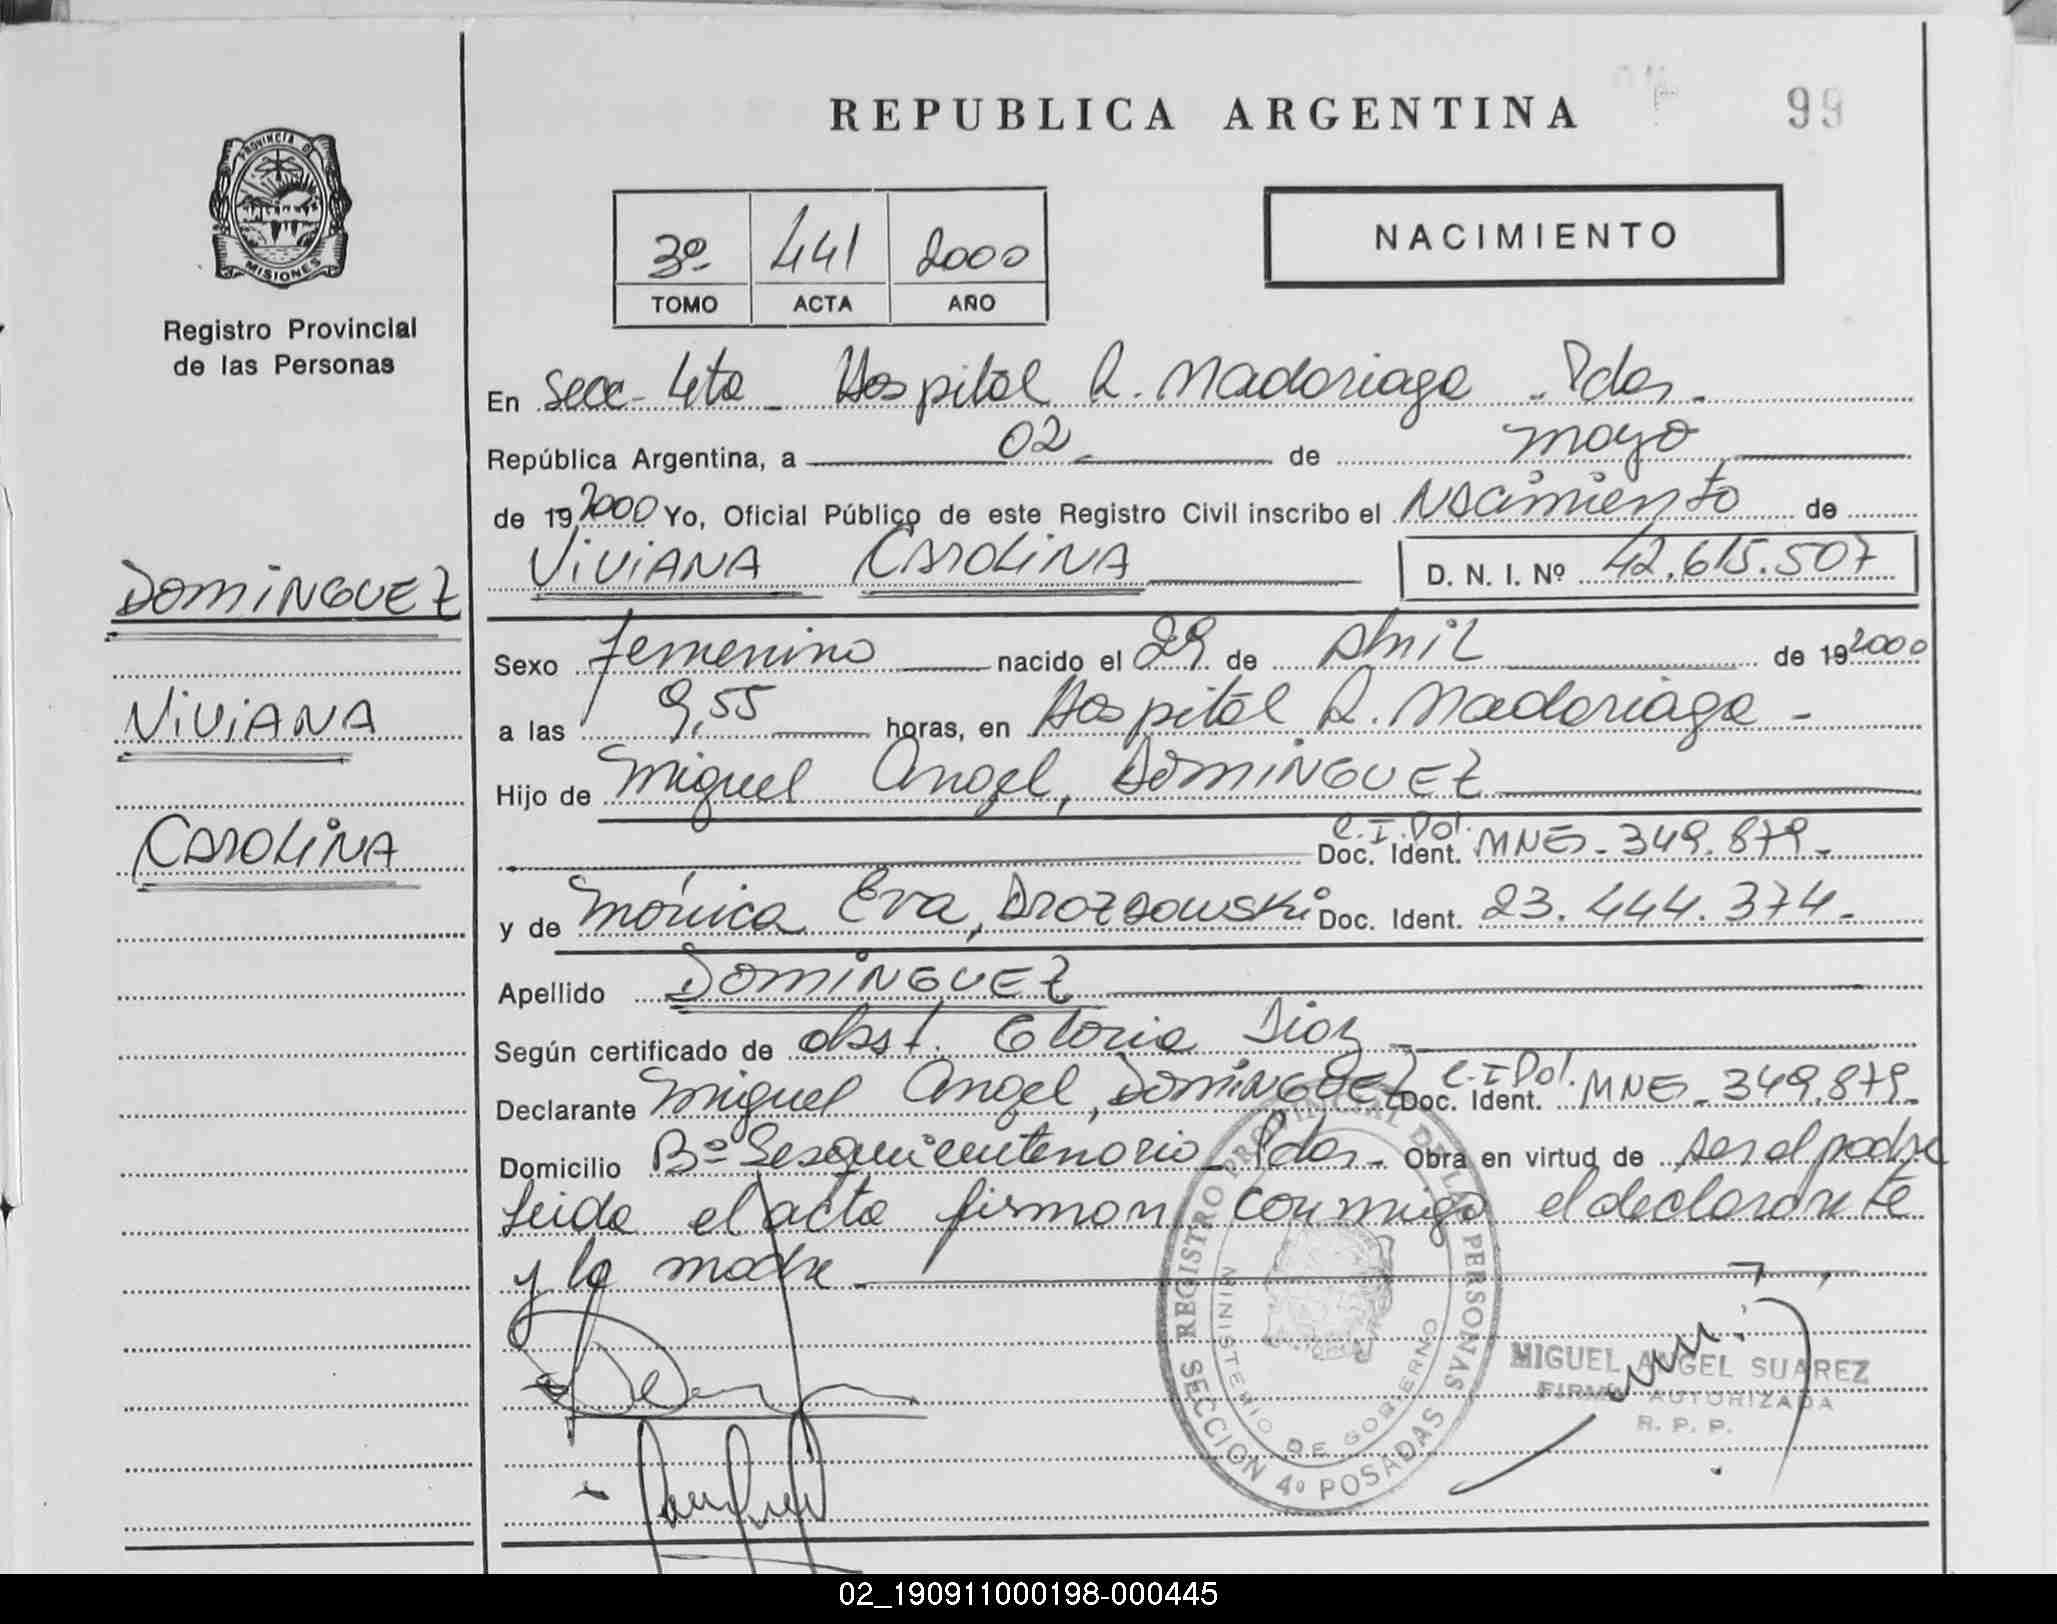 REPUBLICA ARGENTINA
99
PROVINCIA DE
MISIONES
Registro Provincial
de las Personas
3º 441 2000
TOMO ACTA AÑO
NACIMIENTO
En Secc- 4ta - Hospital R. Madariaga - Pdas.
República Argentina, a 02 de mayo
de 19 2000 Yo, Oficial Público de este Registro Civil inscribo el Nacimiento de
VIVIANA CAROLINA D. N. I. Nº 42.615.507
DOMINGUEZ
VIVIANA
CAROLINA
Sexo femenino nacido el 29 de Abril de 19 2000
a las 9,55 horas, en Hospital R. Madariaga -
Hijo de Miguel Angel, DOMINGUEZ
C.I.Pol.
Doc. Ident. MNES- 349.879-
y de Mónica Eva, Drozdowski Doc. Ident. 23.444.374-
Apellido DOMINGUEZ
Según certificado de obst. Gloria Diaz
Declarante Miguel Angel, DOMINGUEZ C.I Pol. Doc. Ident. MNES- 349.879-
Domicilio Bº Sesquicentenario - Pdas- Obra en virtud de ser el padre
Leida el acta firman conmigo el declarante
y la madre
REGISTRO PROVINCIAL DE LAS PERSONAS
SECCION 4º POSADAS
MINISTERIO DE GOBIERNO
MIGUEL ANGEL SUAREZ
FIRMA AUTORIZADA
R. P. P.
02_190911000198-000445